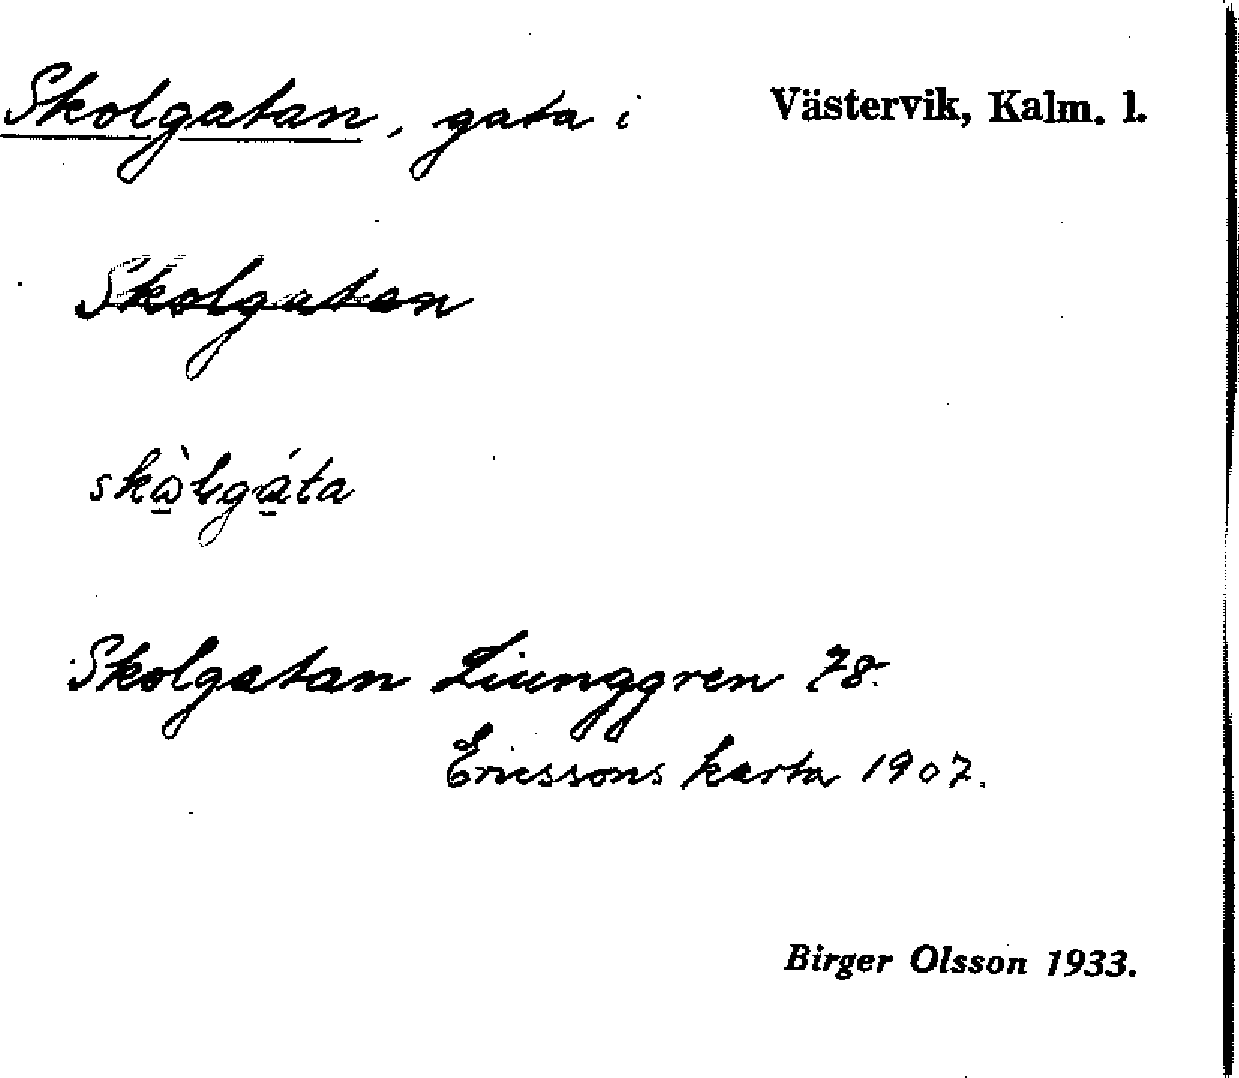 Skolgatan, gata i Västervik, Kalm. l.
Skolgatan
Skolgatan Ljunggren 78.
Ericssons karta 1907.
Birger Olsson 1933.